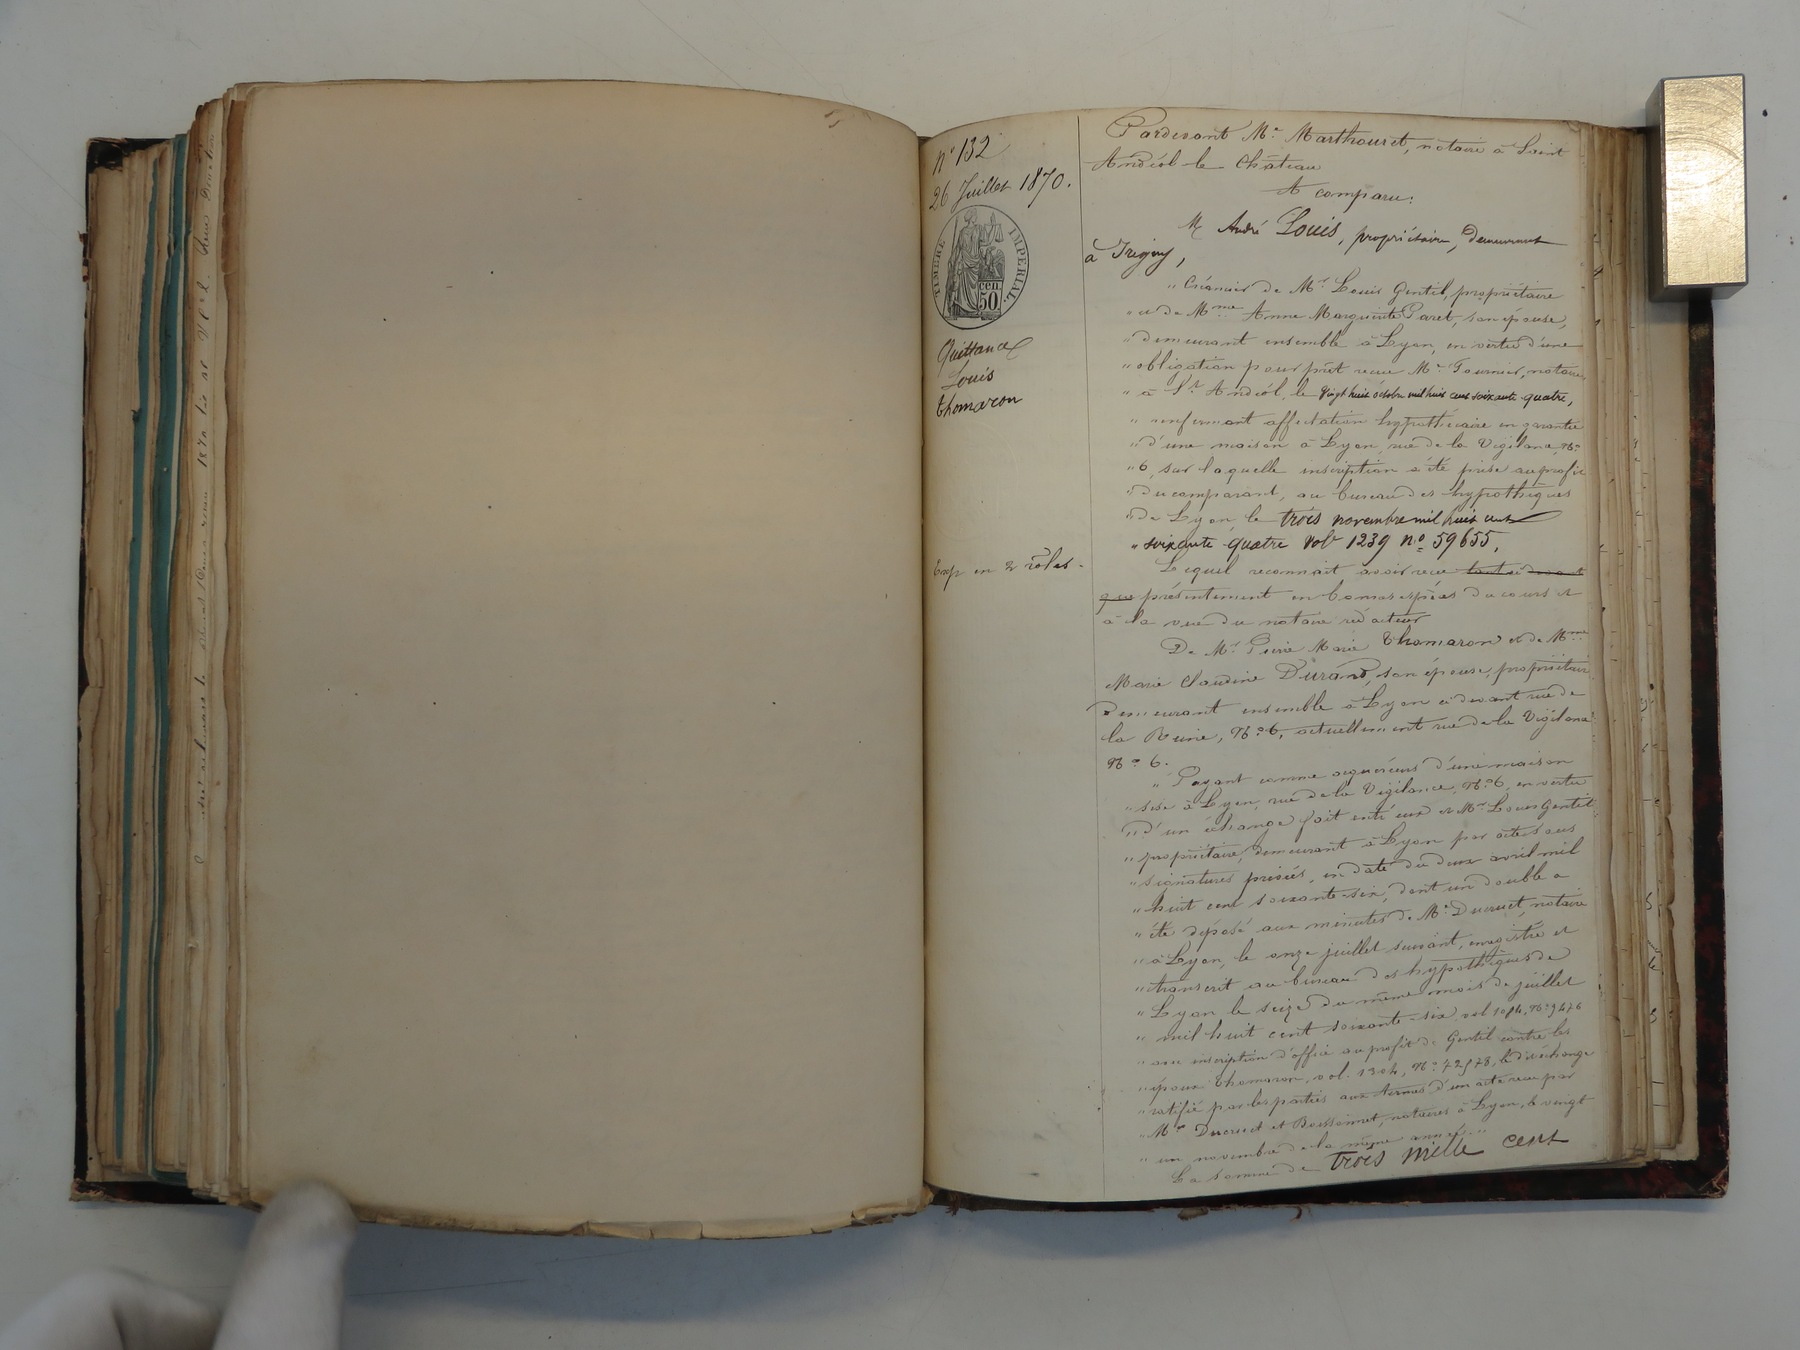 N° 132
26 Juillet 1870.
TIMBRE IMPERIAL
cen.
50
Quittance
Louis
Thomaron
Exp en 2 rôles.
Pardevant Me Marthouret, notaire à Saint
Andéol-le Château
A comparu:
M André Louis, propriétaire, demeurant
à Irigny,
" Créancier de Mr Louis Gentil, propriétaire
" et de Mme Anne Marguerite Paret, son épouse,
" demeurant ensemble à Lyon, en vertu d'une
" obligation pour prêt reçue Me Fournier, notaire
" à St Andéol, le vingt huit octobre mil huit cent soixante quatre,
" renfermant affectation hypothécaire en garantie
" d'une maison à Lyon, rue de la Vigilance, N°
" 6, sur laquelle inscription a été prise au profit
" du comparant, au bureau des hypothèques
" de Lyon, le trois novembre mil huit cent
" soixante quatre vol 1239 no 59655,
Lequel reconnait avoir reçu tant ci devant
que présentement en bonnes espèces du cours et
à la vue du notaire rédacteur
De Mr Pierre Marie Thomaron et de Mme
Marie Claudine Durand, son épouse, propriétaires
demeurant ensemble à Lyon ci devant rue de
la Reine, N° 6, actuellement rue de la Vigilance
N° 6.
" Payant comme acquéreurs d'une maison
" sise à Lyon, rue de la Vigilance, N° 6, en vertu
" d'un échange fait entre eux et Mr Louis Gentil
" propriétaire, demeurant à Lyon par acte sous
" signatures privées, en date du deux avril mil
" huit cent soixante-six, dont un double a
" été déposé aux minutes de Me Ducruet, notaire
" à Lyon, le onze juillet suivant, enregistré et
" transcrit au bureau des hypothèques de
" Lyon le seize du même mois de juillet
" mil huit cent soixante-six, vol 1084, N° 9476
" avec inscription d'office au profit de Gentil contre les
" époux Thomaron, vol. 1304, N° 72978, le dit échange
" ratifié par les parties aux termes d'un acte reçu par
" Me Ducruet et Boissonnet, notaires à Lyon, le vingt
" un novembre de la même année. "
La somme de trois mille cent